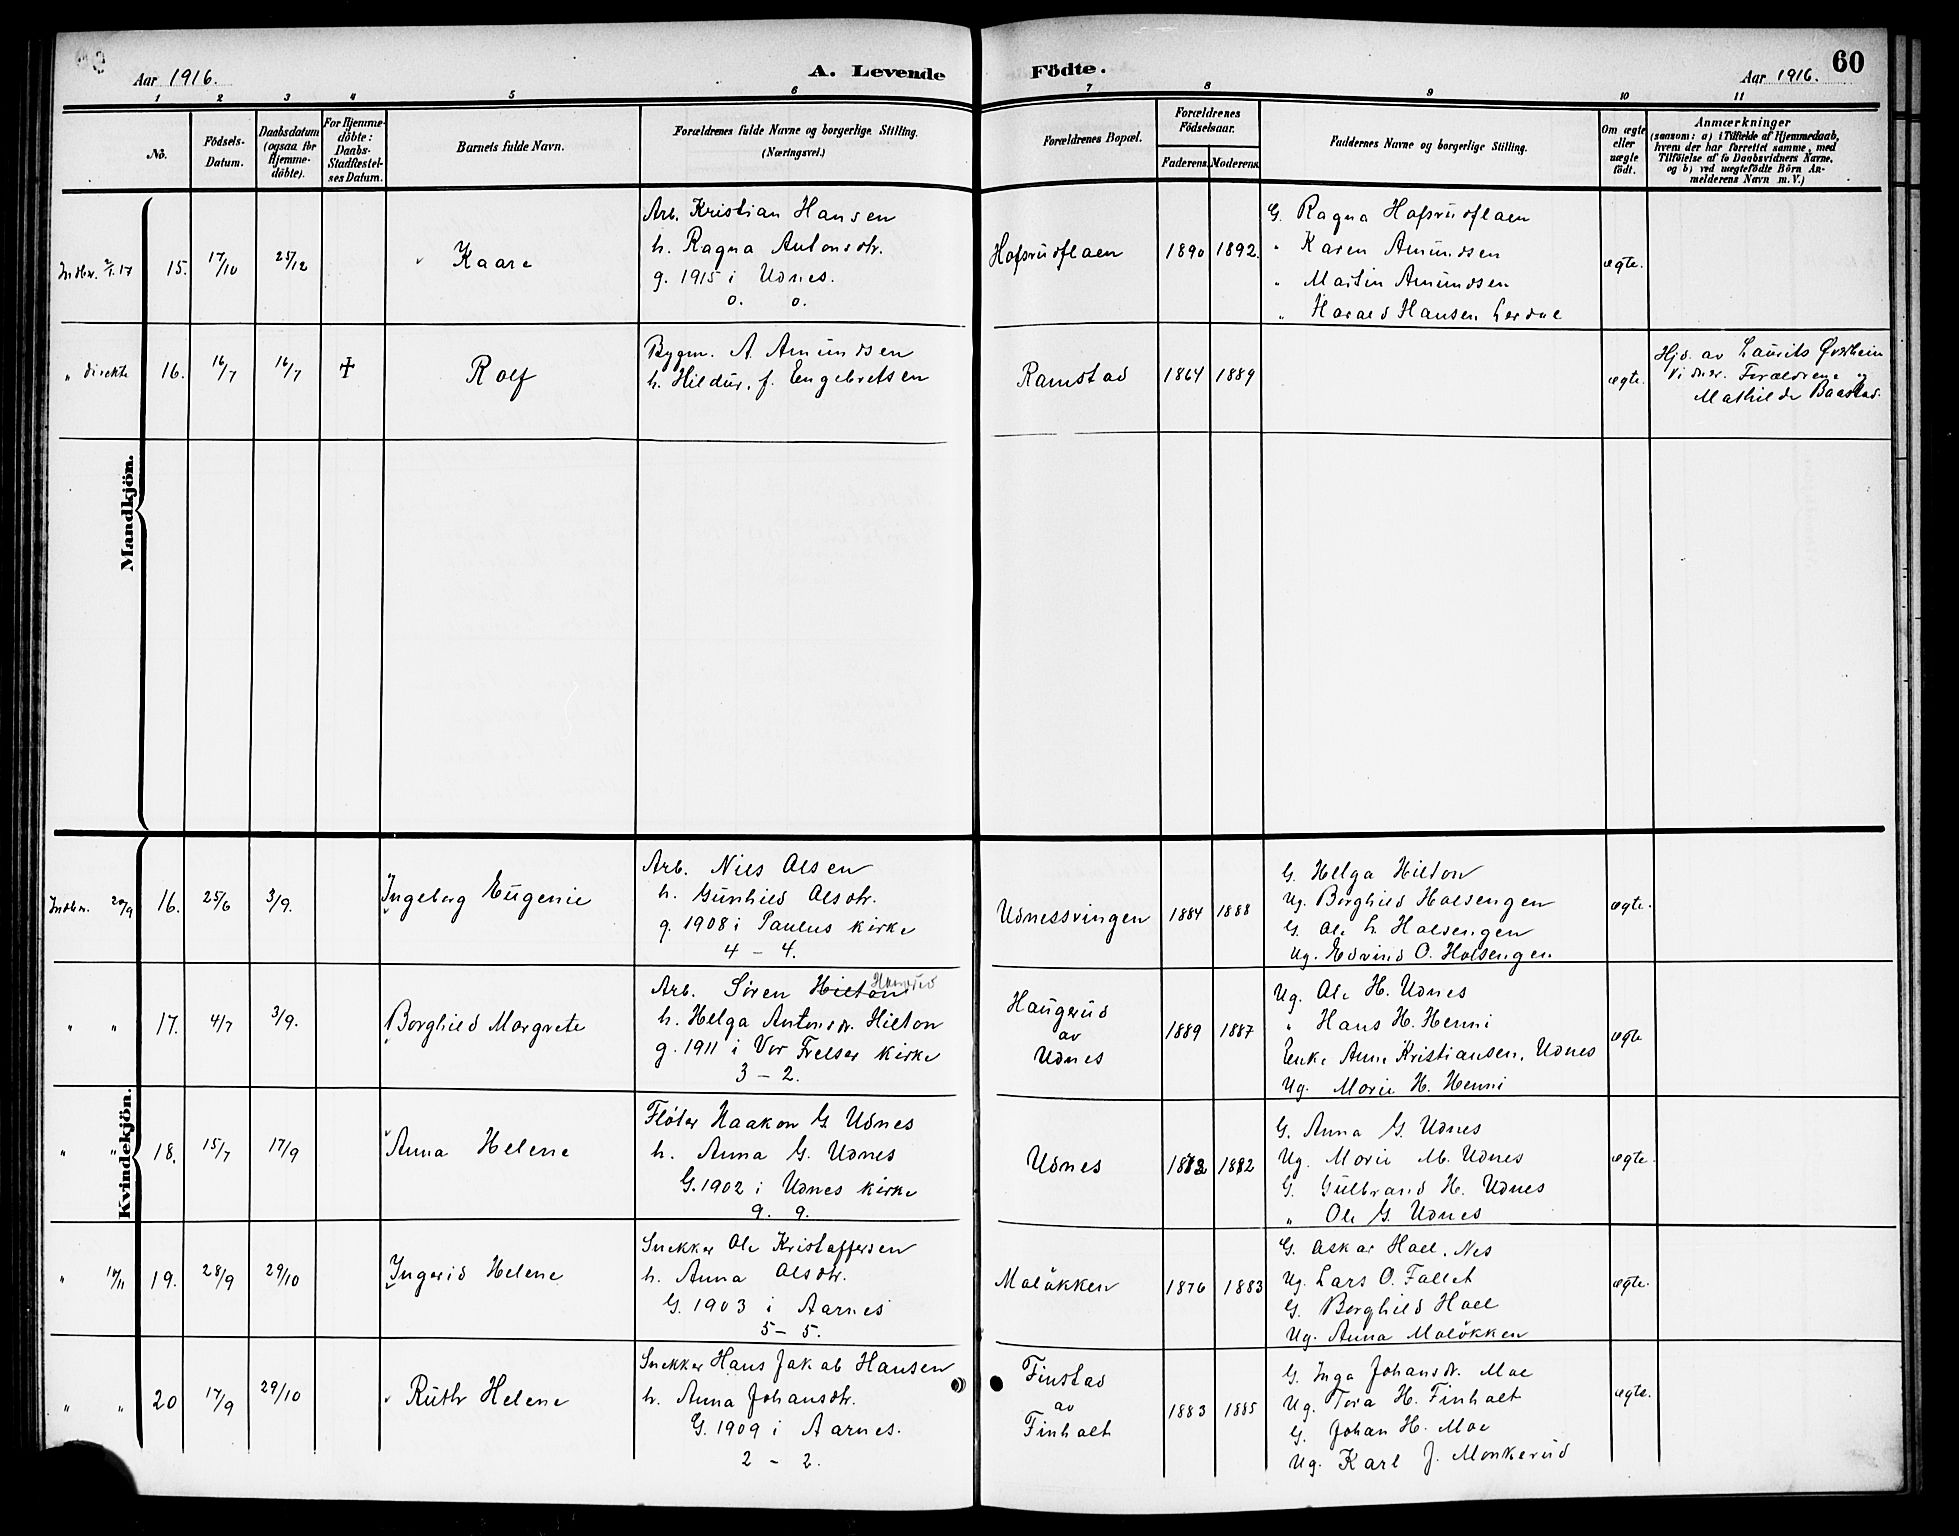 Aar 1916. A. Levende Födte. Aar 1916. 60
1 2 3 4 5 6 7 8 9 10 11
No. Födsels-Datum. Daabsdatum (ogsaa for Hjemme-döbte). For Hjemme-döbte: Daabs-Stadfæstel-ses Datum. Barnets fulde Navn. Forældrenes fulde Navne og borgerlige Stilling. (Næringsvei.) Forældrenes Bopæl. Forældrenes Födselsaar. Faderens. Moderens. Faddernes Navne og borgerlige Stilling. Om ægte eller uægte födt. Anmærkninger (saasom: a) i Tilfælde af Hjemmedaab, hvem der har forrettet samme, med Tilföielse af to Daabsvidners Navne, og b) ved uægtefödte Börn An-melderens Navn m. V.)
Mandkjön.
Indbr. 2/1.17 15. 17/10 25/12 Kaare
Arb. Kristian Hansen
h. Ragna Antonsdtr.
g. 1915 i Udnes.
0. 0.
Hofsrudflaen 1890 1892.
G. Ragna Hofsrudflaen
" Karen Amundsen
" Martin Amundsen
" Harald Hansen Lerdal
ægte.
" direkte 16. 16/7 16/7 ‡ Rolf
Bygm. A. Amundsen
h. Hildur, f. Engebretsen
Ramstad 1864 1889
ægte.
Hjd. av Laurits Øverheim
Vidner. Forældrene og
Mathilde Baastad.
Kvindekjön.
Indbr. 20/9 16. 25/6 3/9. Ingeborg Eugenie
Arb. Nils Olsen
h. Gunhild Olsdtr.
g. 1908 i Paulus kirke
4 - 4.
Udnessvingen 1884 1888
G. Helga Hilton
Ug. Borghild Holsengen
G. Ole L. Holsengen
Ug. Edvind O. Holsengen
ægte.
" " 17. 4/7 3/9. Borghild Margrete
Arb. Søren Hilton
h. Helga Antonsdr. Hilton
g. 1911 i Vor Frelser kirke
3 - 2.
Haugerud
av
Udnes
1889 1887
Ug. Ole H. Udnes
" Hans H. Henni
Enke Anne Kristiansen, Udnes
Ug. Marie H. Henni
ægte
" " 18. 15/7 17/9 Anna Helene
Fløter Haakon G Udnes
h. Anna G. Udnes
G. 1902 i Udnes kirke
9. 9.
Udnes 1882
G. Anna G. Udnes
Ug. Marie M. Udnes
G. Gulbrand H. Udnes
" Ole G. Udnes
ægte.
" 14/11 19. 28/9 29/10 Ingerid Helene
Snekker Ole Kristoffersen
h. Anna Olsdtr.
G. 1903 i Aarnes
5 - 5.
Moløkken 1876 1883
G. Oskar Hoel, Nes
Ug. Lars O. Fallet
G. Borghild Hoel
Ug. Anna Moløkken
ægte.
" " 20 17/9 29/10 Ruth Helene
Snekker Hans Jakob Hansen
h. Anna Johansdtr.
G. 1909 i Aarnes.
2 - 2.
Finstad
av
Finholt
1883 1885
G. Inga Johansdr. Moe
Ug. Tora H. Finholt
G. Johan H. Moe
Ug. Karl J. Monkerud
ægte.